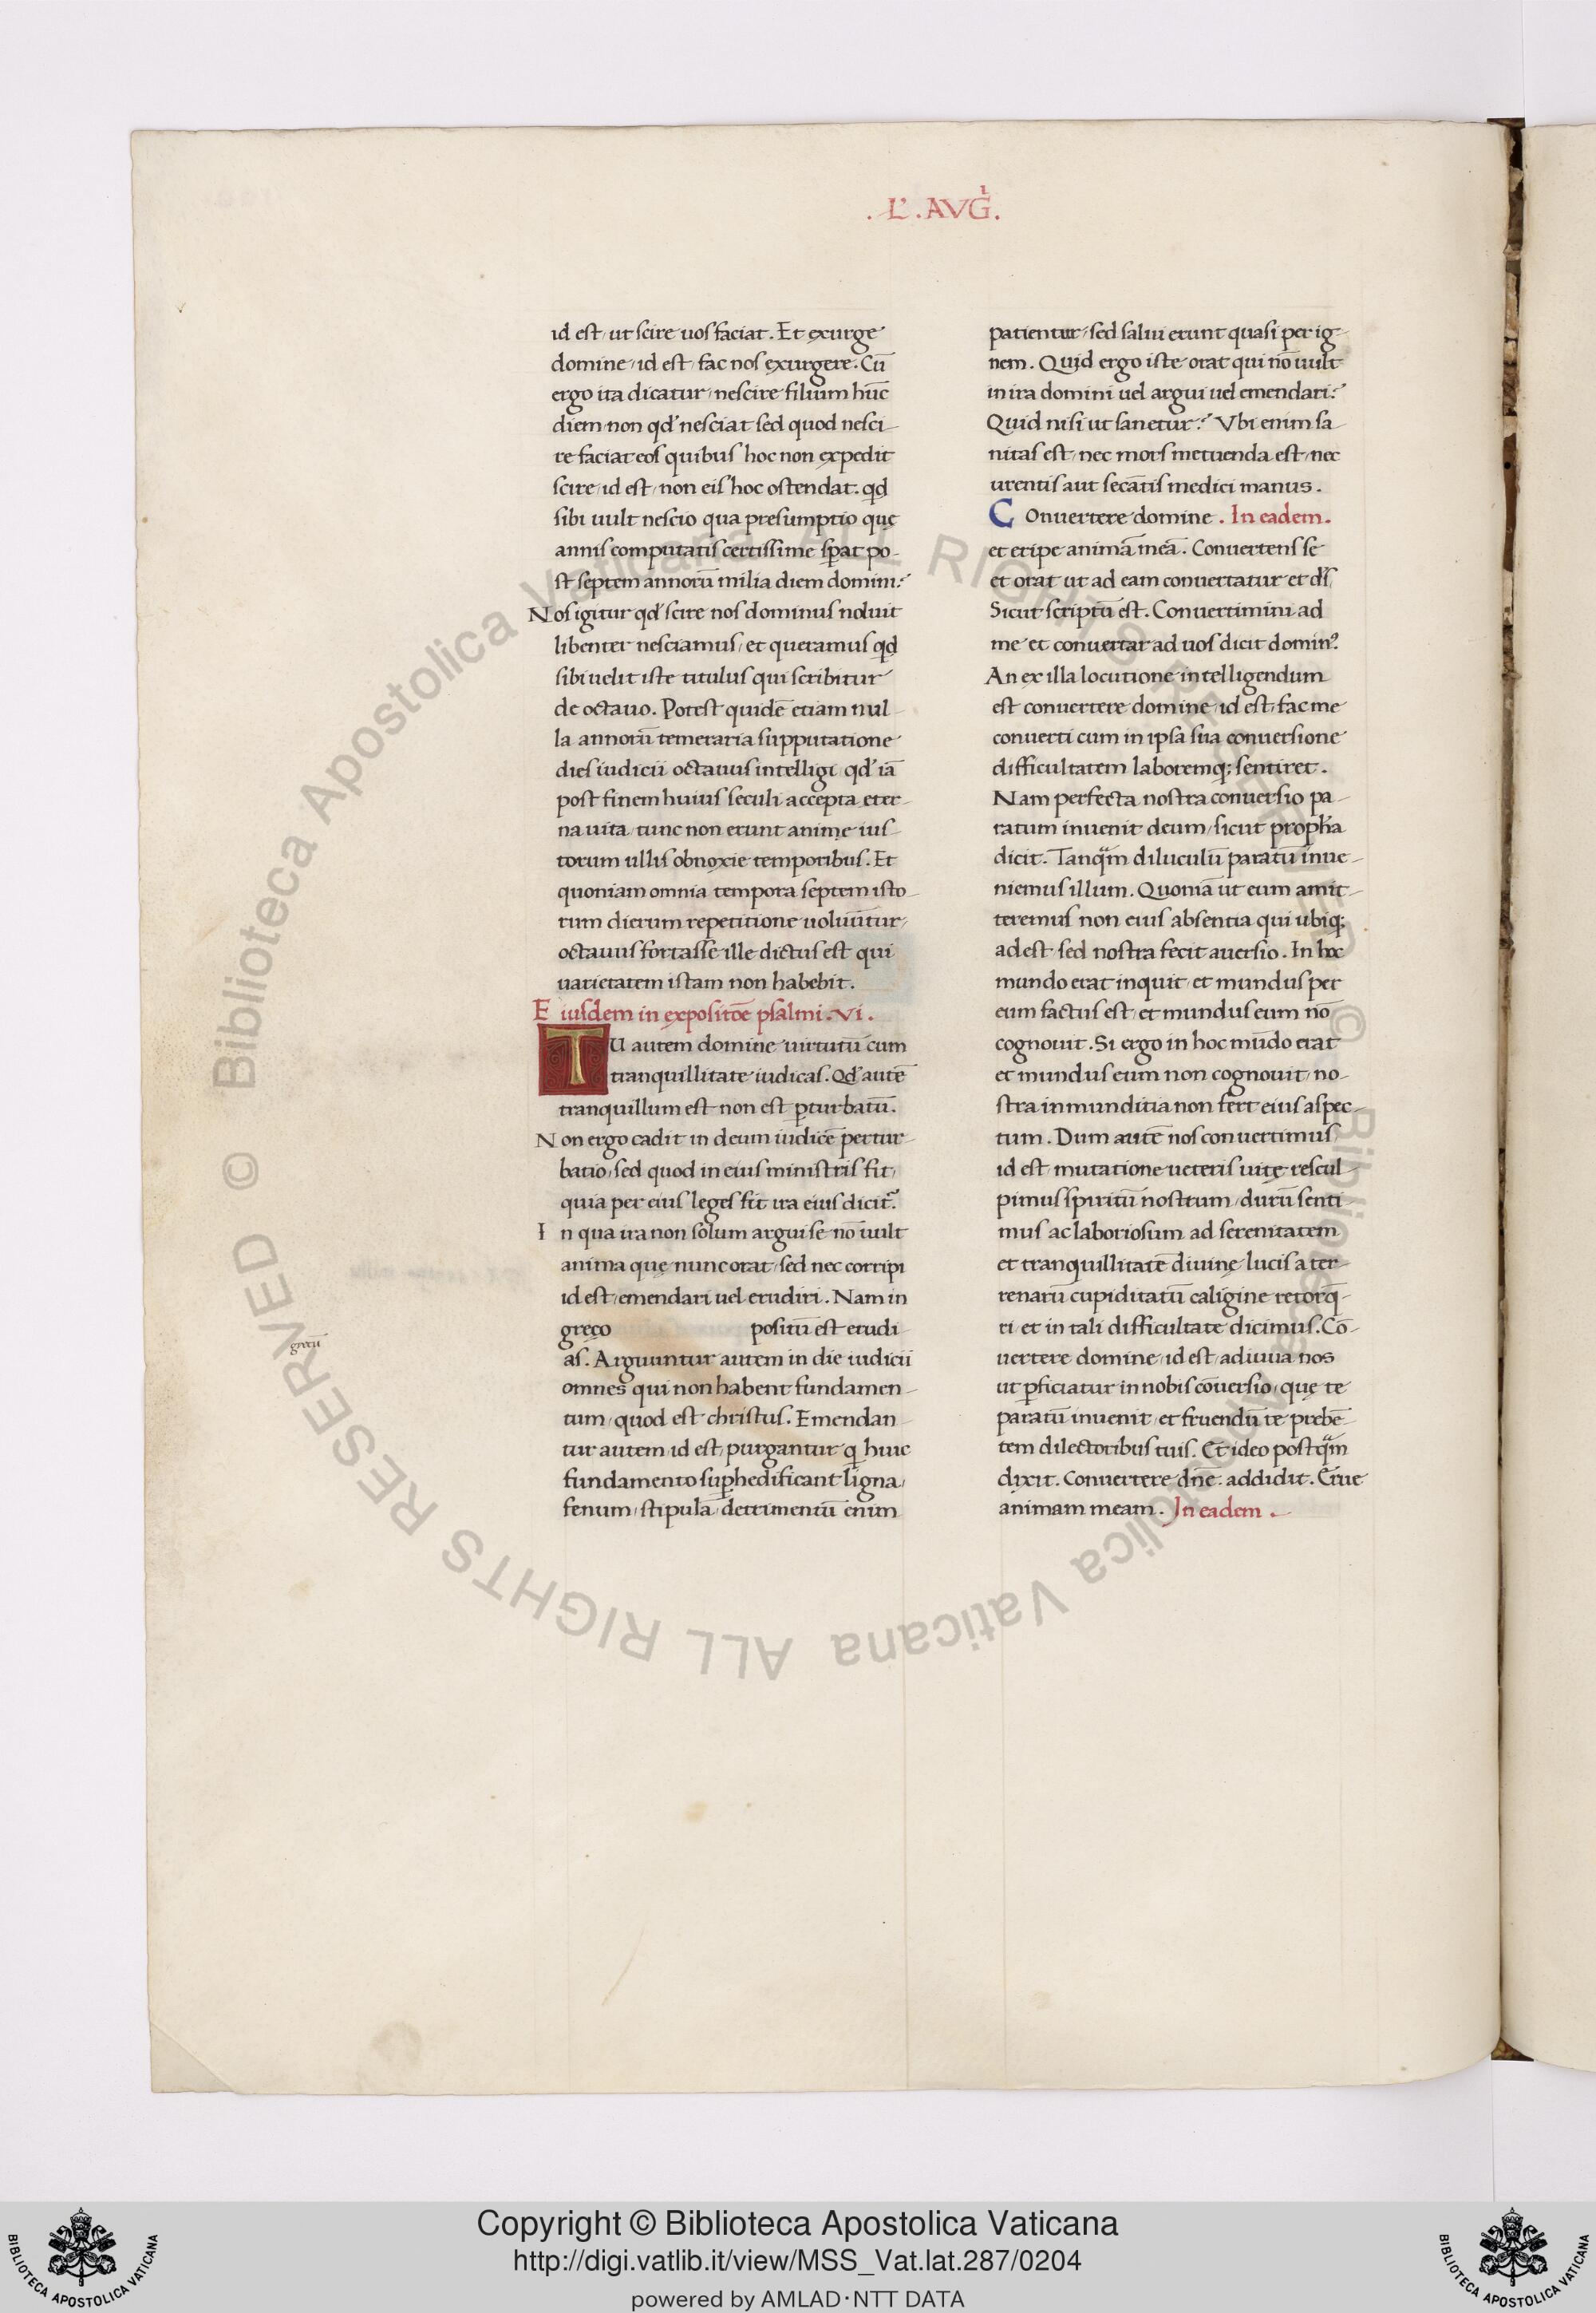 . L’ . AVG̓ .
id est, ut scire uos faciat. Et exurge
domine, id est, fac nos exurgere. Cū
ergo ita dicatur, nescire filium hūc
diem, non qđ nesciat sed quod nesci-
re faciat eos quibus hoc non expedit
scire, id est, non eis hoc ostendat. qd
sibi uult nescio qua presumptio quę
annis computatis certissime sp̄at po-
st septem annorū milia diem domini?
Nos igitur qđ scire nos dominus noluit
libenter nesciamus, et queramus qd
sibi uelit iste titulus qui scribitur
de octauo. Potest quidē etiam nul-
la annorū temeraria supputatione
dies iudicii octauus intelligi qđ iā
post finem huius seculi accepta eter-
na uita, tunc non erunt animę ius-
torum ullis obnoxie temporibus. Et
quoniam omnia tempora septem isto-
rum dierum repetitione uoluūtur,
octauus fortasse ille dictus est qui
uarietatem istam non habebit.
Eiusdem in expositōe psalmi. Vi.
TU autem domine uirtutū cum
tranquillitate iudicas. Qđ autē
tranquillum est non est p̄turbatū.
Non ergo cadit in deum iudicē pertur-
batio, sed quod in eius ministris fit,
quia per eius leges fit ira eius dicit̃.
In qua ira non solum argui se nō uult
anima quę nunc orat, sed nec corripi
id est, emendari uel erudiri. Nam in
gręco positū est erudi
grecū
as. Arguuntur autem in die iudicii
omnes qui non habent fundamen-
tum, quod est christus. Emendan-
tur autem, id est, purgantur qͥ huic
fundamento sup̄hedificant ligna,
fenum, stipulā, detrimentū enim
patientur, sed salui erunt quasi per ig-
nem. Quid ergo iste orat qui nō uult
in ira domini uel argui uel emendari?
Quid nisi ut sanetur? Vbi enim sa-
nitas est, nec mors metuenda est, nec
urentis aut secātis medici manus.
COnuertere domine. In eadem.
et eripe animā meā. Conuertens se
et orat ut ad eam conuertatur et dš,
Sicut scriptū est. Conuertimini ad
me et conuertar ad uos dicit dominꝰ.
An ex illa locutione intelligendum
est conuertere domine, id est, fac me
conuerti cum in ipsa sua conuersione
difficultatem laboremq; sentiret.
Nam perfecta nostra conuersio pa-
ratum inuenit deum, sicut proph̄a
dicit. Tanq̄m diluculū paratū inue-
niemus illum. Quoniā ut eum amit-
teremus non eius absentia qui ubiq;
adest, sed nostra fecit auersio. In hoc
mundo erat inquit, et mundus per
eum factus est, et mundus eum nō
cognouit. Si ergo in hoc mūdo erat
et mundus eum non cognouit, no-
stra inmunditia non fert eius aspec-
tum. Dum autē nos conuertimus,
id est, mutatione ueteris uitę rescul-
pimus spiritū nostrum, durū senti-
mus ac laboriosum ad serenitatem
et tranquillitatē diuinę lucis a ter-
renarū cupiditatū caligine retorq̄-
ri, et in tali difficultate dicimus. Cō-
uertere domine, id est, adiuua nos
ut p̄ficiatur in nobis cōuersio, quę te
paratū inuenit, et fruendū te prebē-
tem dilectoribus tuis. Et ideo postq̄m
dixit. Conuertere dn̄e. addidit. Erue
animam meam. In eadem.
Copyright © Biblioteca Apostolica Vaticana
http://digi.vatlib.it/view/MSS_Vat.lat.287/0204
powered by AMLAD·NTT DATA
BIBLIOTECA APOSTOLICA VATICANA
BIBLIOTECA APOSTOLICA VATICANA
© Biblioteca Apostolica Vaticana ALL RIGHTS RESERVED © Biblioteca Apostolica Vaticana ALL RIGHTS RESERVED